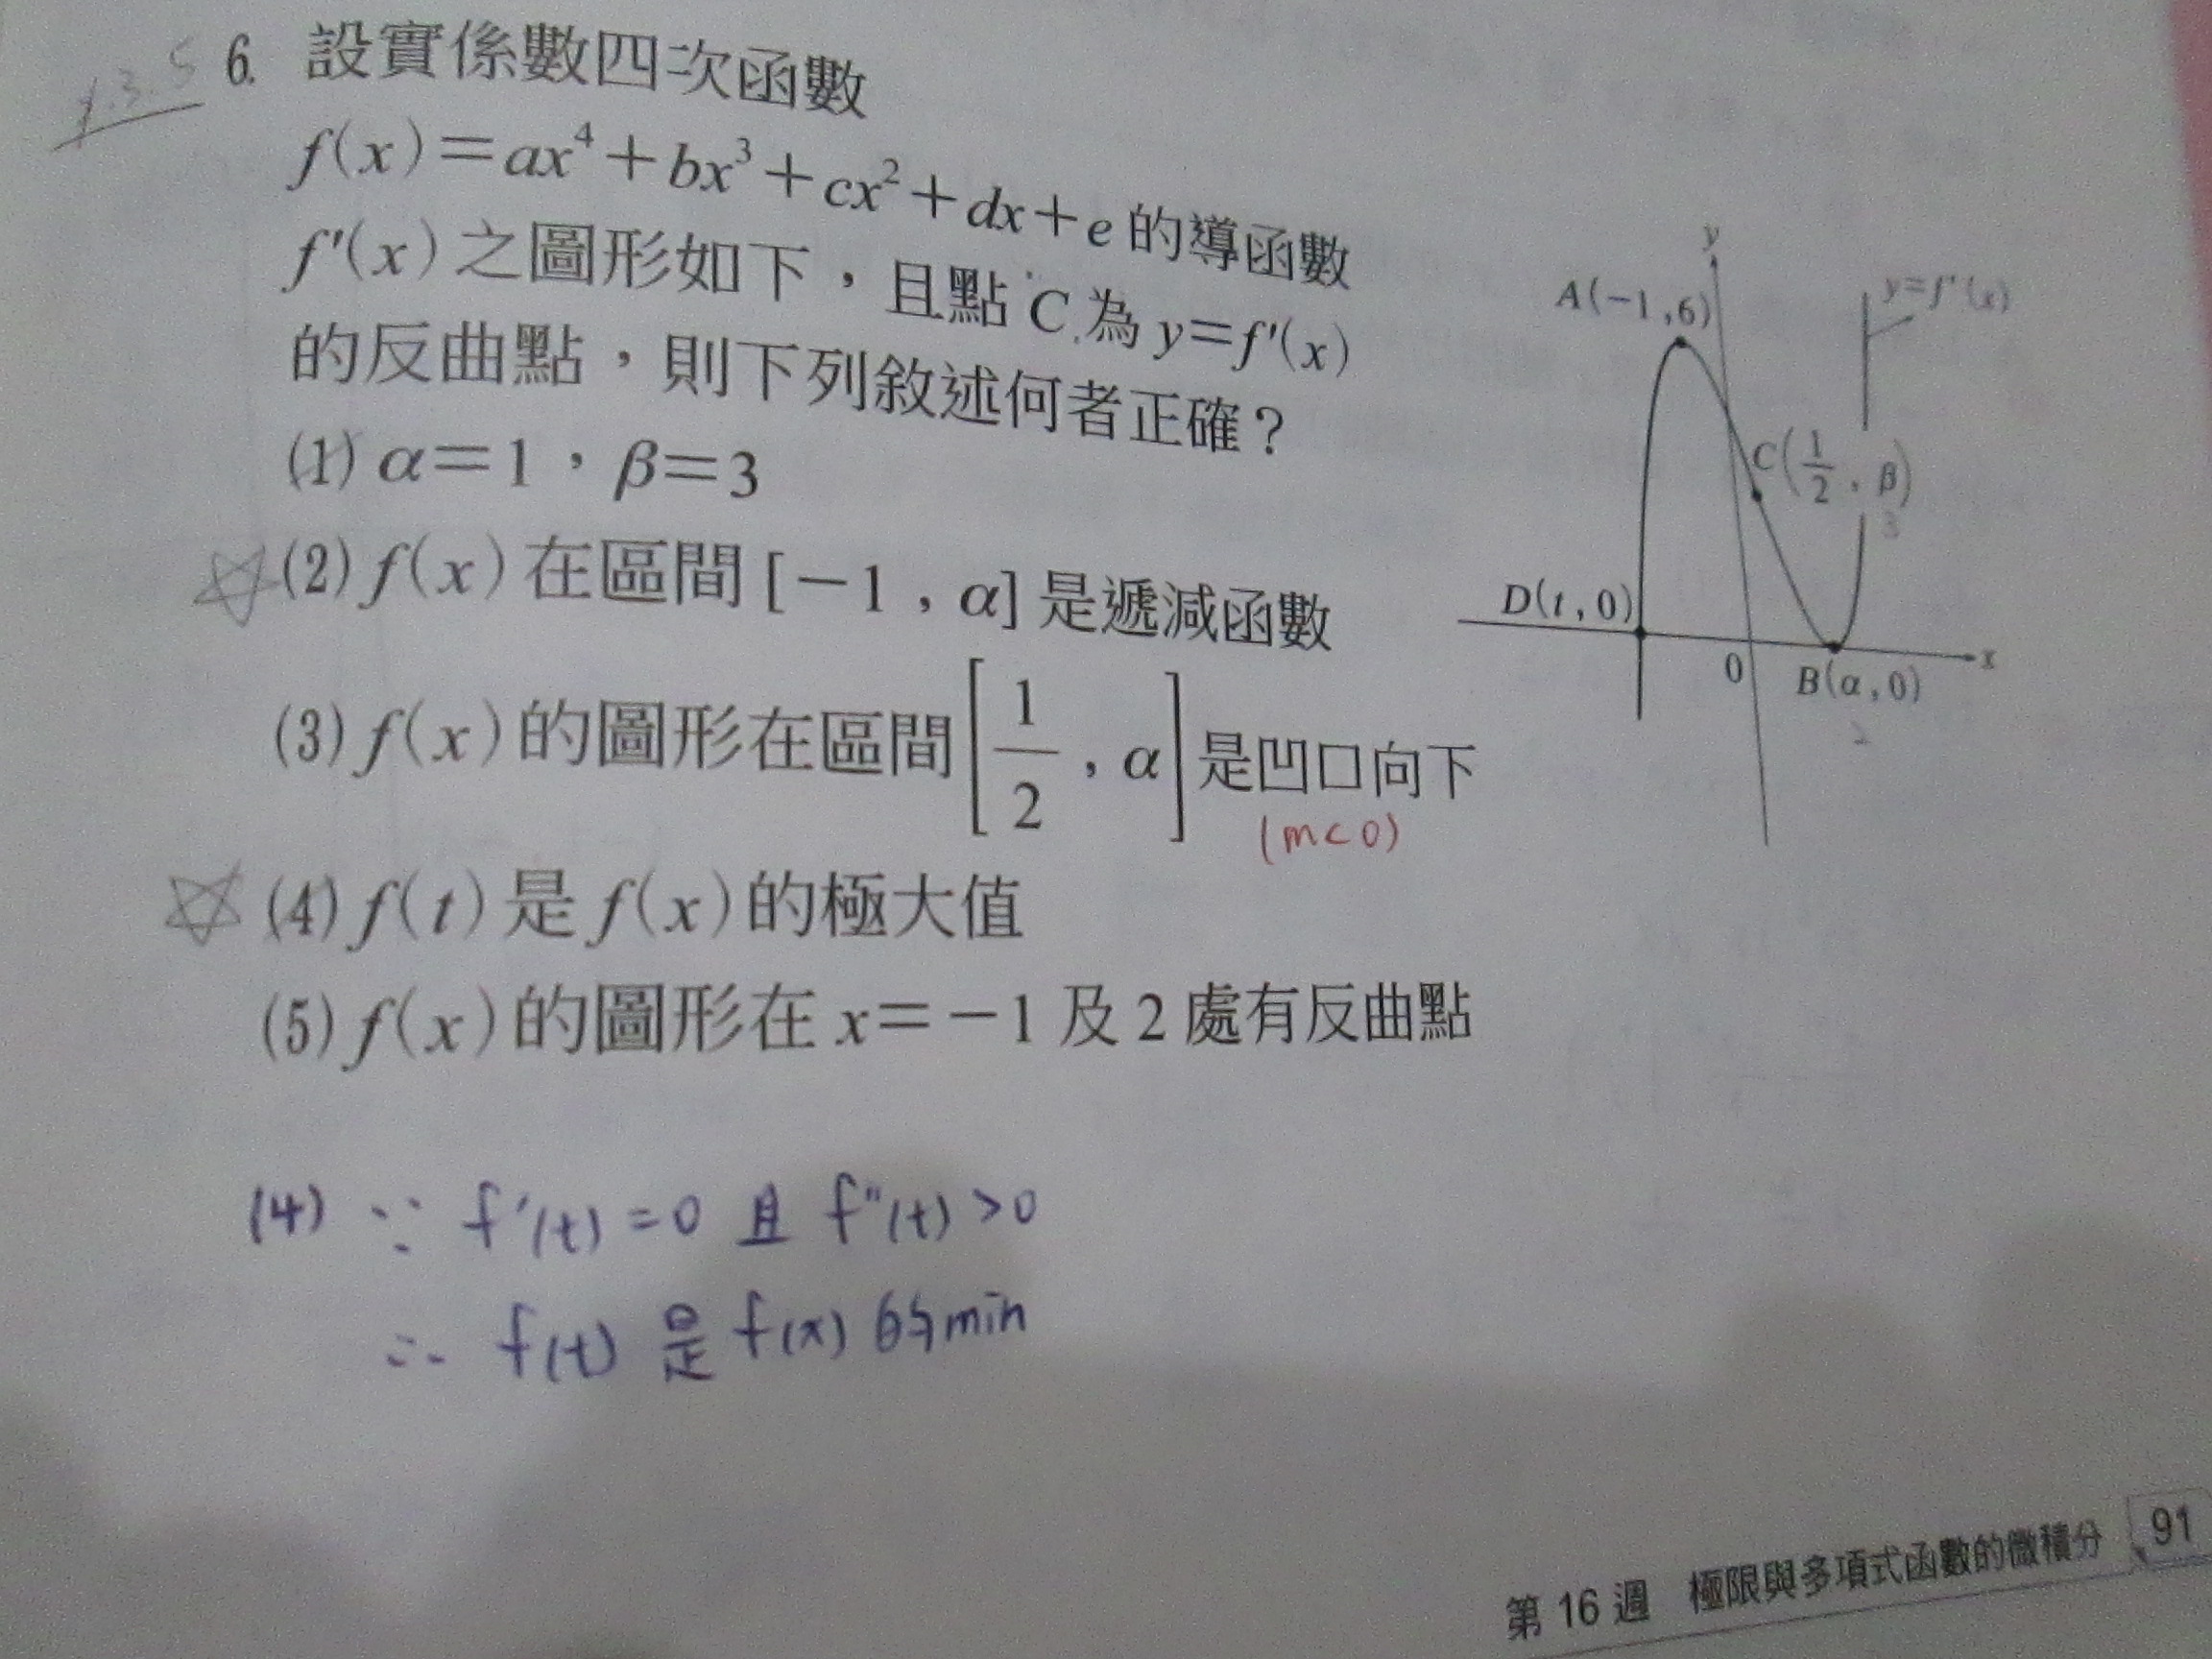 1.3.5
6. 設實係數四次函數
f(x)=ax⁴+bx³+cx²+dx+e的導函數
f'(x)之圖形如下，且點C為y=f'(x)
的反曲點，則下列敘述何者正確？
(1) α=1，β=3
☆(2) f(x)在區間[-1，α]是遞減函數
(3) f(x)的圖形在區間[1/2，α]是凹口向下
(m<0)
☆(4) f(t)是f(x)的極大值
(5) f(x)的圖形在x=-1及2處有反曲點
y
A(-1,6)
y=f'(x)
C(1/2,β)
3
D(t,0)
0
x
B(α,0)
2
(4) ∵ f'(t)=0 且 f"(t)>0
∴ f(t) 是 f(x) 的min
第16週 極限與多項式函數的微積分 91